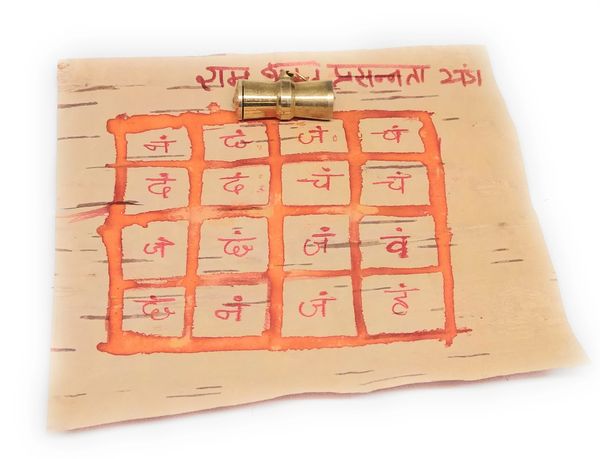 राम प्रसन्नता यंत्र
नं छं जं बं
दं दं चं चं
जं छं जं वं
छं नं जं हं